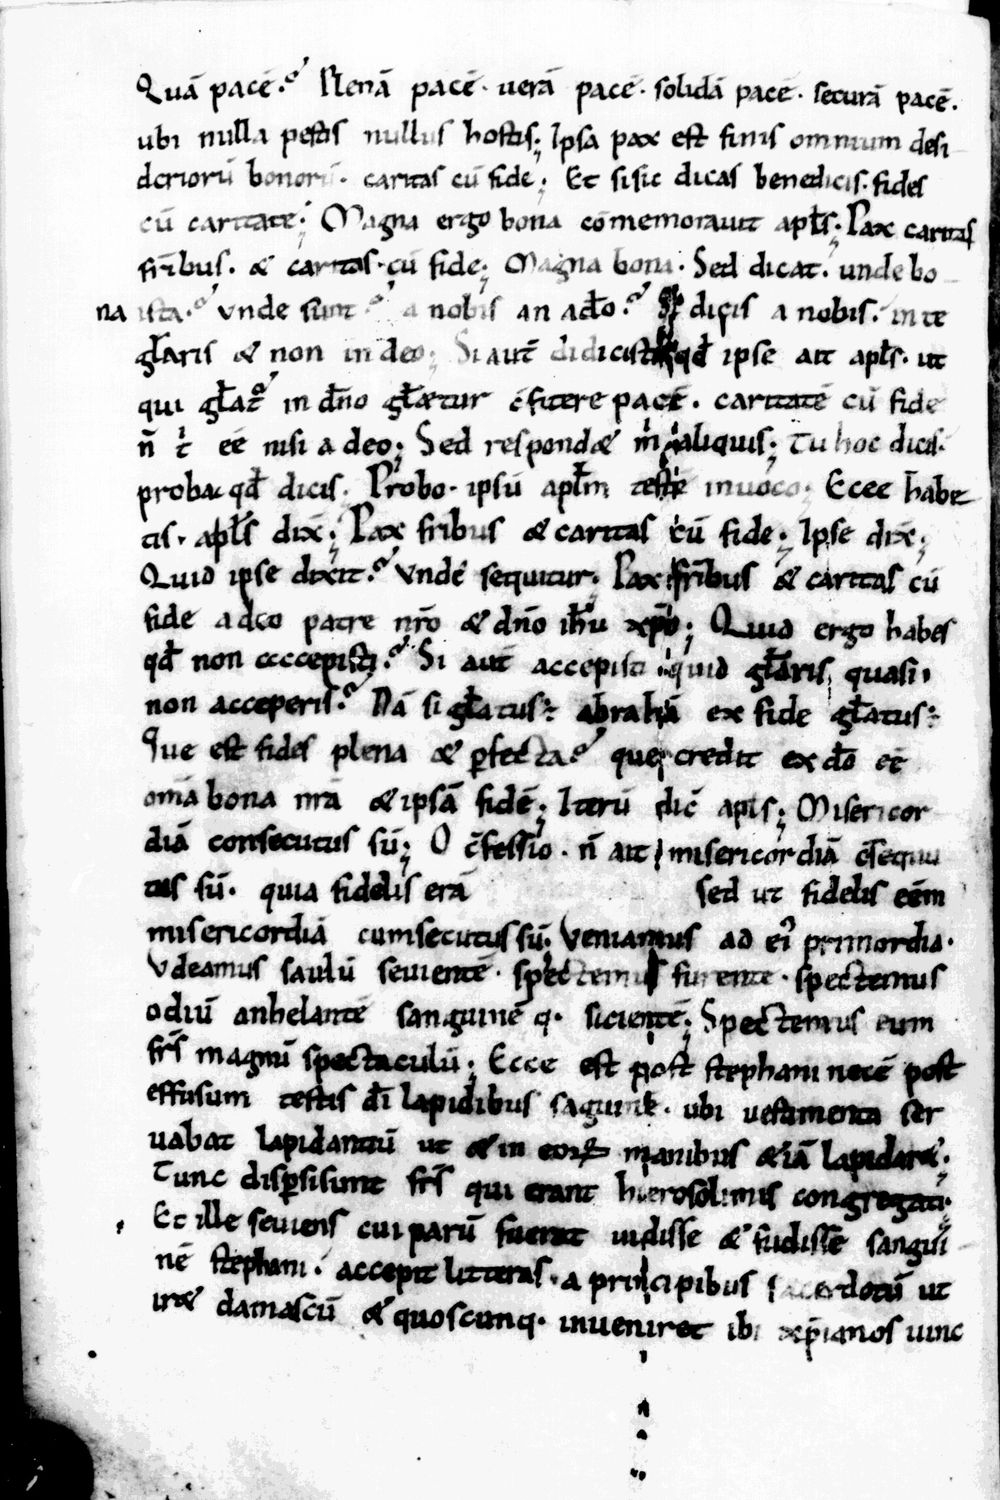 Quā pacē.? Plenā pacē. uerā pacē. solidā pacē. securā pacē.
ubi nulla pestis nullus hostis; Ipsa pax est finis omnium desi
deriorū bonorū. caritas cū fide; Et si sic dicas benedicis. fides
cū caritate; Magna ergo bona cōmemorauit apl̄s; Pax caritas
fr̄ibus. & caritas cū fide; Magna bona. Sed dicat. unde bo
na ista.? Vnde sunt? a nobis an a dō.? Si dicis a nobis. in te
gl̄aris & non in deo; Si aut̄ didicisti qd̄ ipse ait apl̄s. ut
qui gl̄at̄? in dn̄o gl̄aetur c̄fitere pacē. caritatē cū fide
n̄ t̄ eē nisi a deo; Sed respond& m̄ aliquis; Tu hoc dicis.
proba qd̄ dicis. Probo. ipsū apl̄m testē inuoco; Ecce habe
tis. apl̄s dix̄; Pax fribus & caritas cū fide; Ipse dix̄;
Quid ipse dixit.? Vnde sequitur. Pax fr̄ibus & caritas cū
fide a deo patre nr̄o & dn̄o ih̄u xp̄o; Quid ergo habes
qd̄ non accepisti.? Si aut̄ accepisti quid gl̄aris quasi
non acceperis.? Nā si gl̄atus: abrahā ex fide gl̄atus:
Que est fides plena & ꝑfecta.? que credit ex dō et
om̄a bona nr̄a & ipsā fidē; Iterū dic̄ apl̄s; Misericor
diā consecutus sū; O c̄fessio. n̄ ait misericordiā c̄sequu
tus sū. quia fidelis erā sed ut fidelis eēm
misericordiā cumsecutus sū. Veniamus ad ei primordia.
Vdeamus saulū seuientē. spectemus furente. spectemus
odiū anhelantē sanguinē q. sicientē; Spectemus eum
fr̄s magnū spectaculū; Ecce est post stephani necē post
effusum testis dī lapidibus saguinē. ubi uestimenta ser
uabat lapidantiū ut & in eoꝝ manibus &iā lapidar&.
Tunc disꝑsi sunt fr̄s qui erant hierosolimis congregati.
Et ille seuiens cui parū fuerat uidisse & fudisse sangui
nē stephani. accepit litteras. a principibus sacerdotū ut
ir& damascū & quoscunq. inueniret ibi xp̄ianos uinc